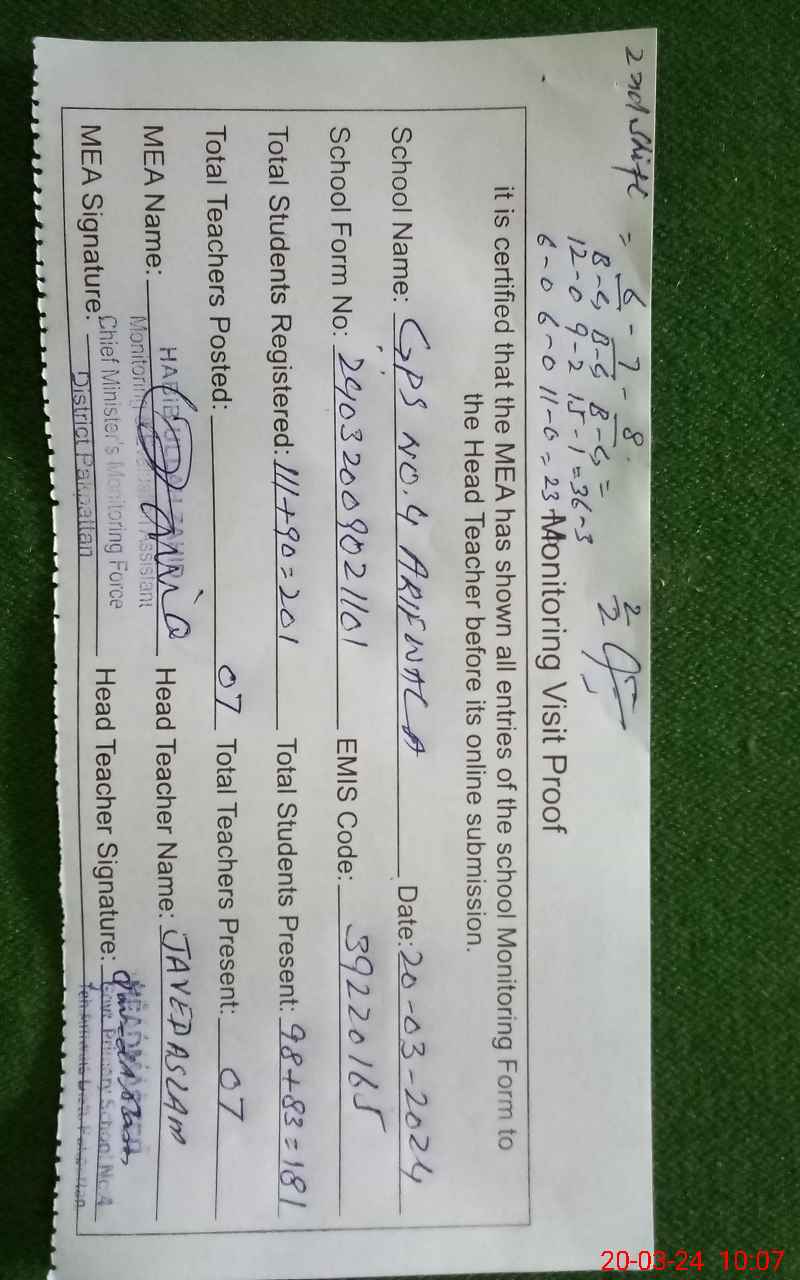 2nd shift = 6 - 7 - 8.
B-G B-G B-G =
12-0 9-2 15-1 = 36-3
6-0 6-0 11-0 = 23
Monitoring Visit Proof
it is certified that the MEA has shown all entries of the school Monitoring Form to
the Head Teacher before its online submission.
School Name: GPS NO.4 ARIFWALA Date: 20-03-2024
School Form No: 24032009021101 EMIS Code: 39220165
Total Students Registered: 111+90=201 Total Students Present: 98+83=181
Total Teachers Posted: 07 Total Teachers Present: 07
MEA Name: Head Teacher Name: JAVED ASLAM
Monitoring Assistant
MEA Signature: Head Teacher Signature:
Chief Minister's Monitoring Force
District Pakpattan
Govt. Primary School No.4
20-03-24 10:07